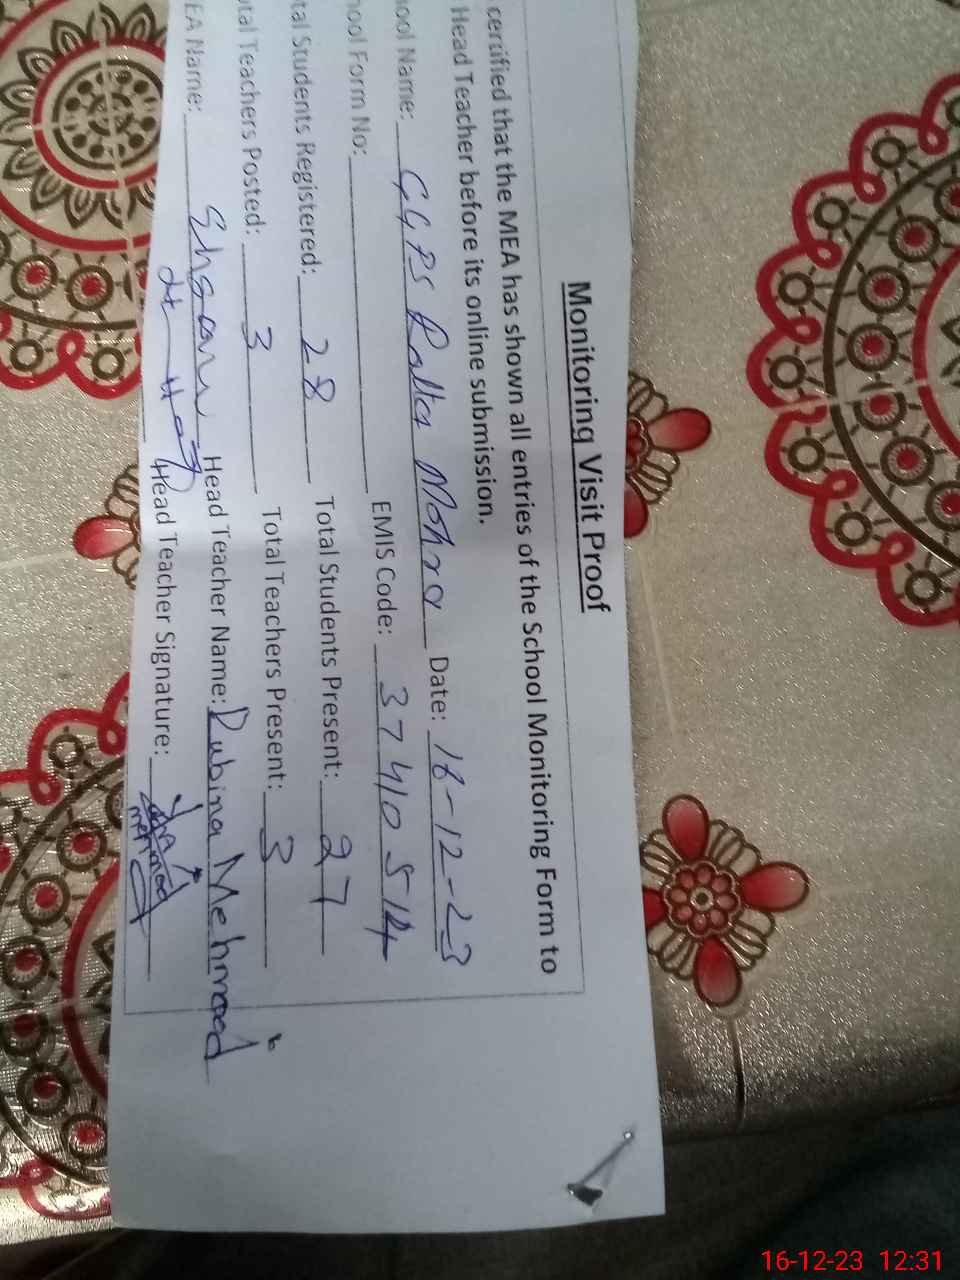 Monitoring Visit Proof
certified that the MEA has shown all entries of the School Monitoring Form to
Head Teacher before its online submission.
ool Name: GGPS Mohra Date: 16-12-23
ool Form No: EMIS Code: 37410514
tal Students Registered: 28 Total Students Present: 27
tal Teachers Posted: 3 Total Teachers Present: 3
EA Name: Head Teacher Name: Rubina Mehmood
Head Teacher Signature:
16-12-23 12:31